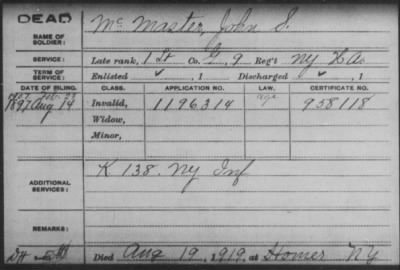 DEAD
NAME OF SOLDIER: McMaster, John S.
SERVICE: Late rank, 1 Lt Co. G, 9 Reg't NY H A
TERM OF SERVICE: Enlisted ✓, 1 Discharged ✓, 1
DATE OF FILING. CLASS. APPLICATION NO. LAW. CERTIFICATE NO.
1897 Aug 14 Invalid, 1196314 age 958118
Widow,
Minor,
ADDITIONAL SERVICES: K 138. NY Inf
REMARKS:
Died Aug 19, 1919, at Homer NY